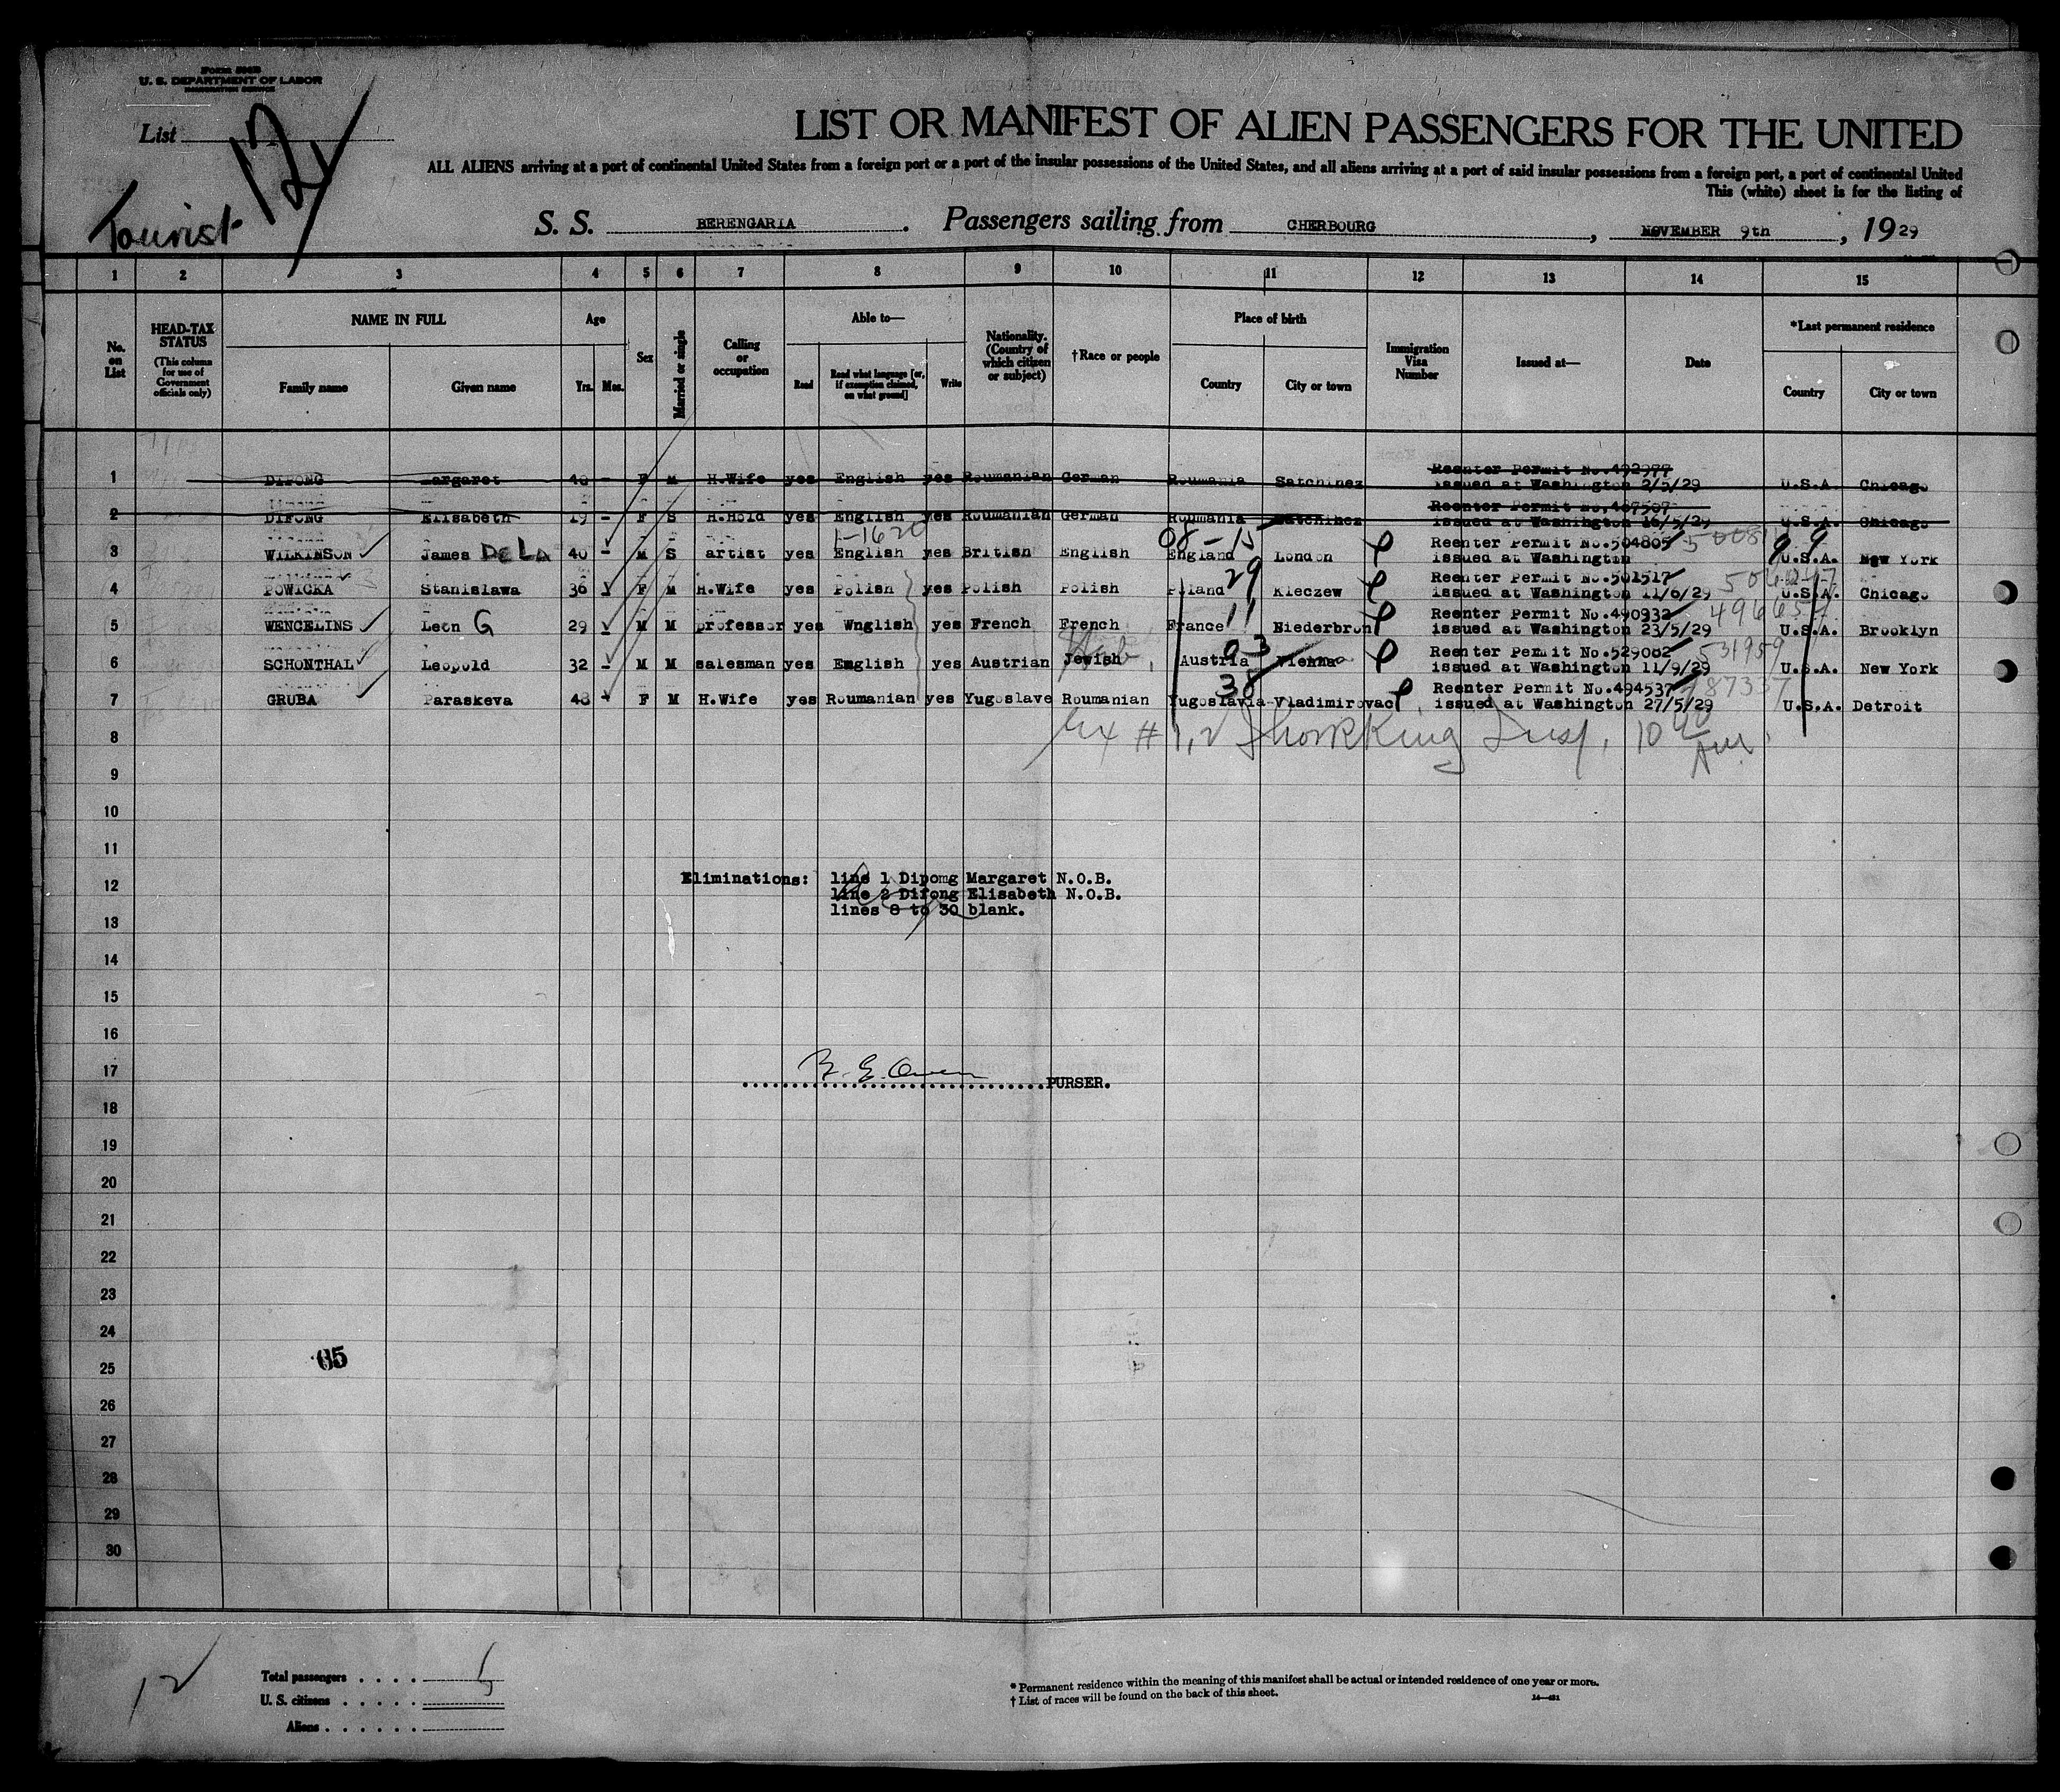 U. S. DEPARTMENT OF LABOR
IMMIGRATION SERVICE
List 12
Tourist
LIST OR MANIFEST OF ALIEN PASSENGERS FOR THE UNITED
ALL ALIENS arriving at a port of continental United States from a foreign port or a port of the insular possessions of the United States, and all aliens arriving at a port of said insular possessions from a foreign port, a port of continental United
This (white) sheet is for the listing of
S. S. BERENGARIA. Passengers sailing from CHERBOURG, NOVEMBER 9th, 1929
1 2 3 4 5 6 7 8 9 10 11 12 13 14 15
No. on List
HEAD-TAX STATUS (This column for use of Government officials only)
NAME IN FULL Family name Given name
Age Yrs. Mos.
Sex
Married or single
Calling or occupation
Able to— Read Read what language [or, if exemption claimed, on what ground] Write
Nationality. (Country of which citizen or subject)
†Race or people
Place of birth Country City or town
Immigration Visa Number
Issued at—
Date
*Last permanent residence Country City or town
1 DIPONG Margaret 48 - F M H.Wife yes English yes Roumanian German Roumania Satchinez Reenter Permit No.492977 issued at Washington 2/5/29 U.S.A. Chicago
2 DIFONG Elisabeth 19 - F S H.Hold yes English yes Roumanian German Roumania Satchinez Reenter Permit No.487507 issued at Washington 16/5/29 U.S.A. Chicago
1-1620 08-15
3 WILKINSON James DE LA 40 - M S artist yes English yes British English England London Reenter Permit No.504805 issued at Washington U.S.A. New York
29
4 POWICKA Stanislawa 36 F M H.Wife yes Polish yes Polish Polish Poland Kleczew Reenter Permit No.501517 issued at Washington 11/6/29 U.S.A. Chicago
11
5 WENCELINS Leon G 29 M M professor yes Wnglish yes French French France Niederbron Reenter Permit No.490932 issued at Washington 23/5/29 U.S.A. Brooklyn
03
6 SCHONTHAL Leopold 32 - M M salesman yes English yes Austrian Jewish Heb. Austria Vienna Reenter Permit No.529082 531959 issued at Washington 11/9/29 U.S.A. New York
38
7 GRUBA Paraskeva 48 F M H.Wife yes Roumanian yes Yugoslave Roumanian Yugoslavia Vladimirovac Reenter Permit No.494537 issued at Washington 27/5/29 U.S.A. Detroit
8
9
10
11
12
13
14
15
16
17
18
19
20
21
22
23
24
25
26
27
28
29
30
Eliminations: line 1 Dipomg Margaret N.O.B.
line 2 Difong Elisabeth N.O.B.
lines 8 to 30 blank.
PURSER.
65
12
Total passengers . . . . 5
U. S. citizens . . . . .
Aliens . . . . . .
* Permanent residence within the meaning of this manifest shall be actual or intended residence of one year or more.
† List of races will be found on the back of this sheet.
14—491